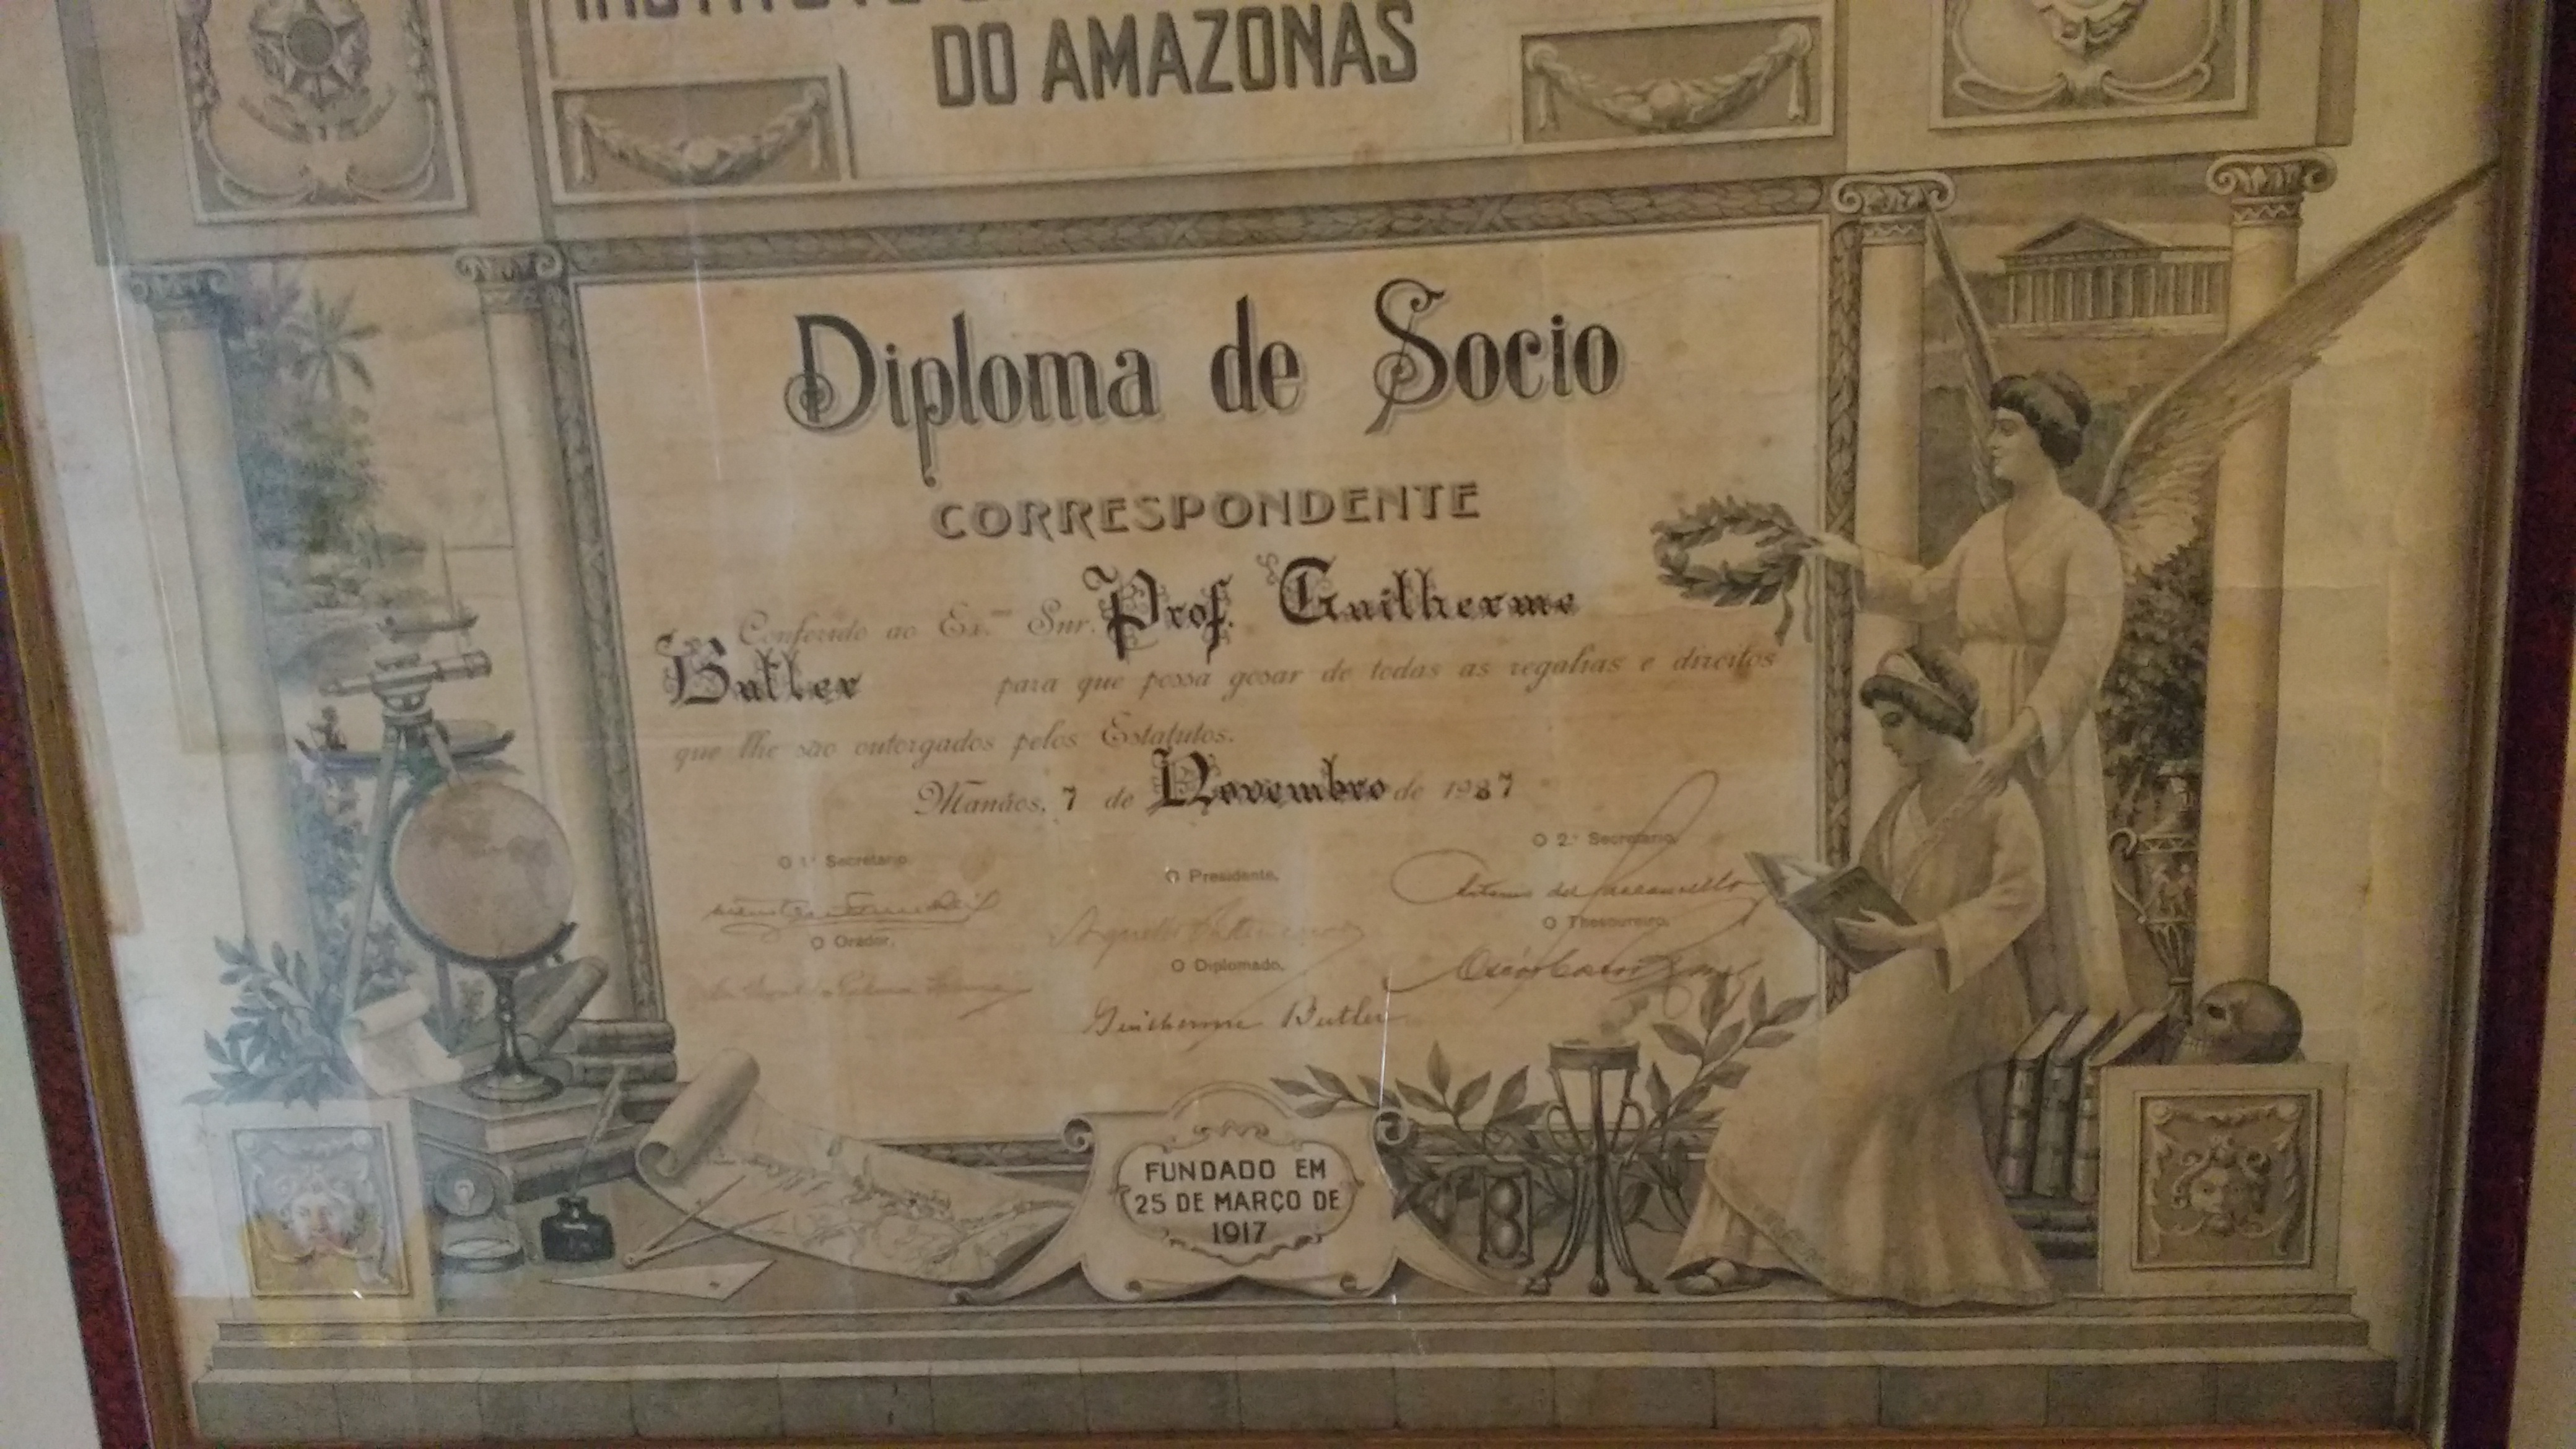 DO AMAZONAS
Diploma de Socio
CORRESPONDENTE
Conferido ao Ex.mo Snr. Prof. Guilherme
Butler para que possa gosar de todas as regalias e direitos
que lhe são outorgados pelos Estatutos.
Manáos, 7 de Novembro de 1937
O 1º Secretario,
O Presidente,
O 2º Secretario,
O Orador,
O Diplomado,
O Thesoureiro,
Guilherme Butler
FUNDADO EM
25 DE MARÇO DE
1917